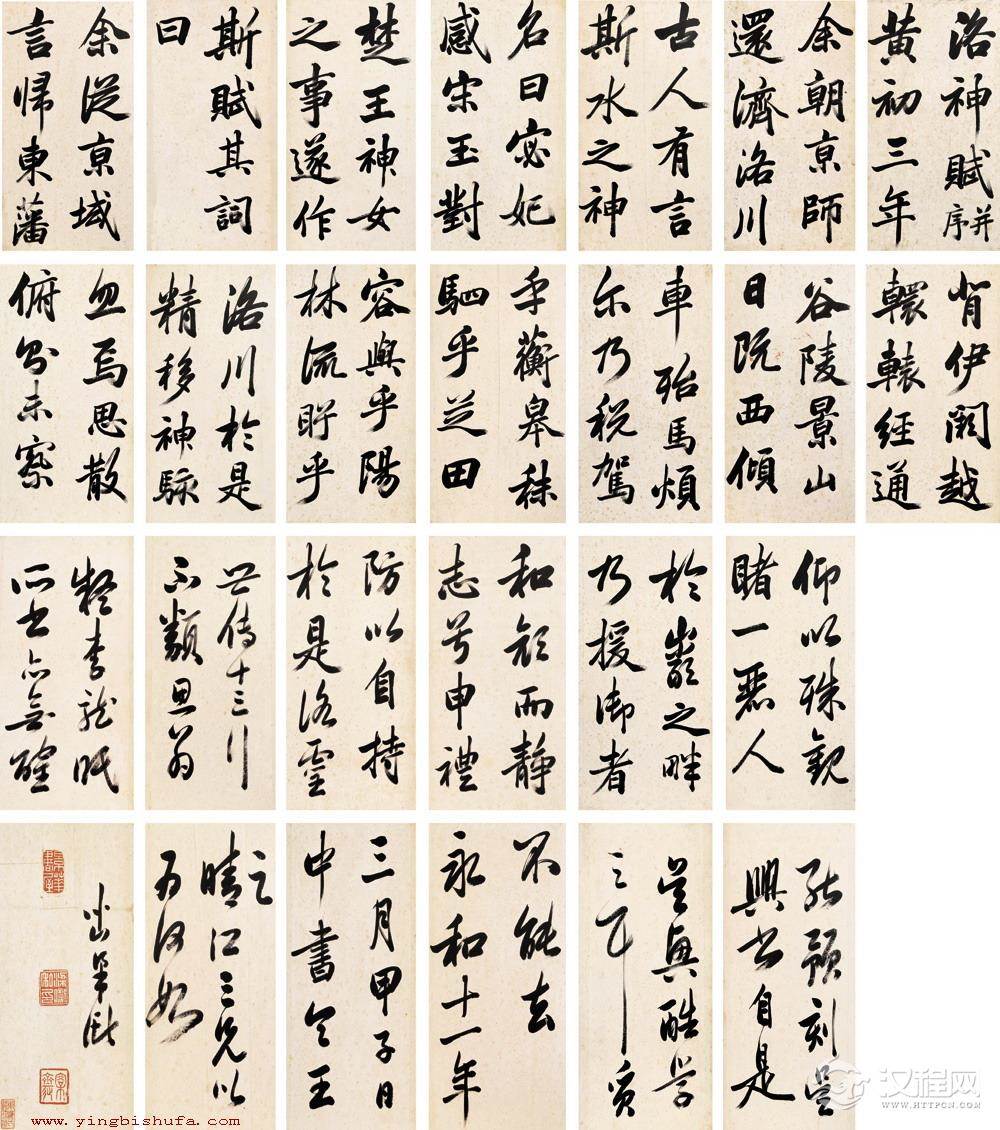 洛神賦并序
黄初三年
余朝京師
還濟洛川
古人有言
斯水之神
名曰宓妃
感宋玉對
楚王神女
之事遂作
斯賦其詞
曰
余從京域
言歸東藩
背伊闕越
轘轅經通
谷陵景山
日既西傾
車殆馬煩
尔乃税駕
乎蘅皋秣
駟乎芝田
容與乎陽
林流眄乎
洛川於是
精移神駭
忽焉思散
俯則未察
仰以殊觀
睹一麗人
於巖之畔
乃援御者
和顔而静
志兮申禮
防以自持
於是洛靈
世傳十三行
不類思翁
疑李龍眠
所書亦無確
刻
興書自是
與酷學
之耳
不能去
永和十一年
三月甲子日
中書令王
之
晴江三兄以
为何如
www.yingbishufa.com
汉程网
WWW.HTTPCN.COM